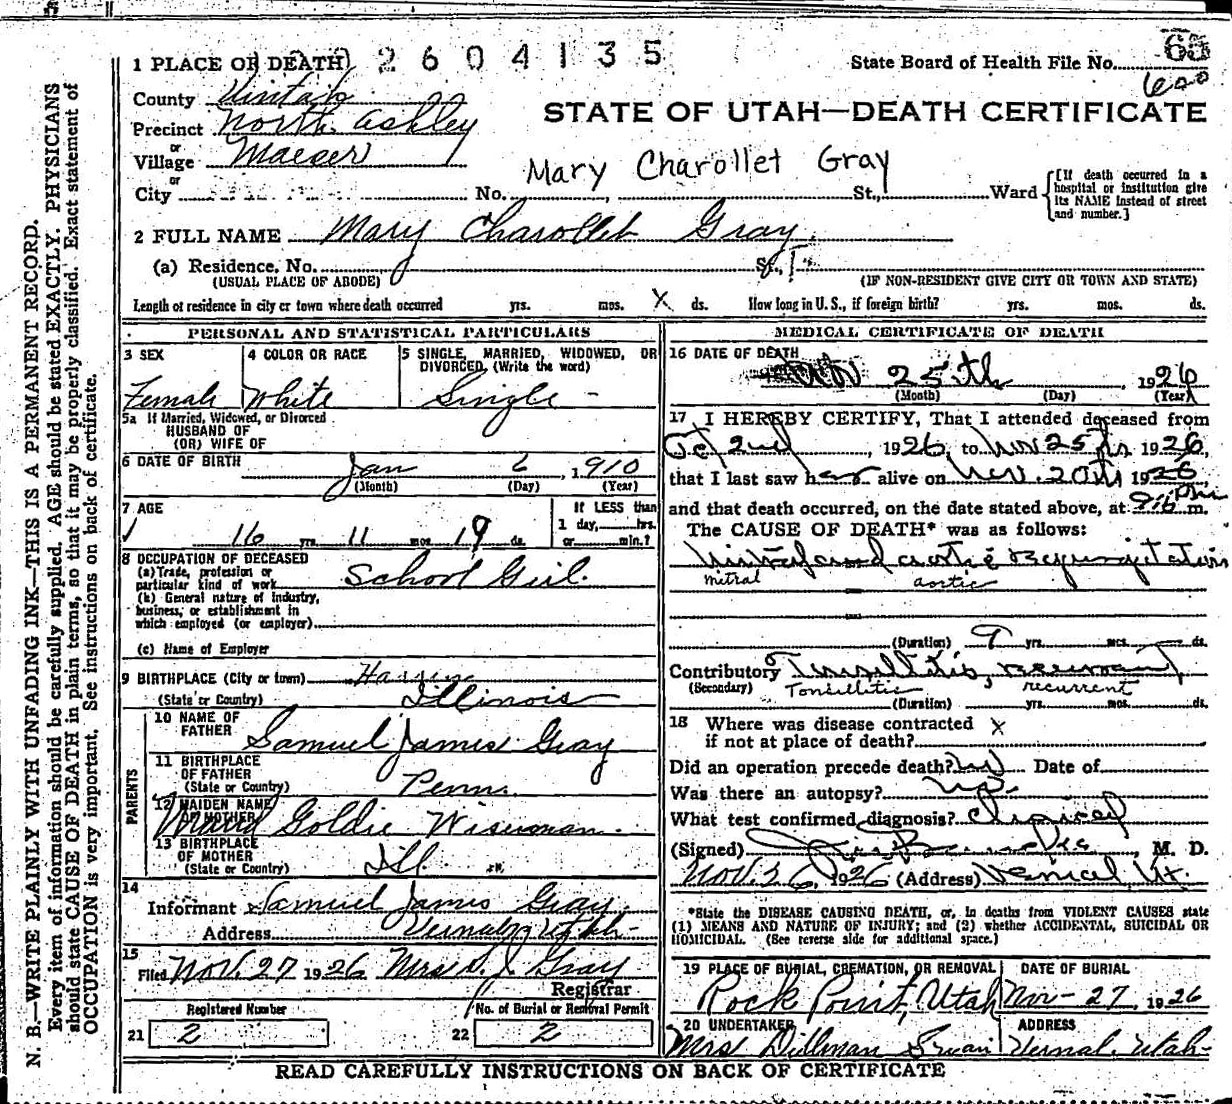 1 PLACE OF DEATH 2604135 State Board of Health File No. 65
600
County Uintah
STATE OF UTAH—DEATH CERTIFICATE
Precinct North Ashley
or
Village Maeser
or
Mary Charollet Gray
City No. , St., Ward
[If death occurred in a hospital or institution give its NAME instead of street and number.]
2 FULL NAME Mary Charollet Gray
(a) Residence. No. St.,
(USUAL PLACE OF ABODE) (IF NON-RESIDENT GIVE CITY OR TOWN AND STATE)
Length of residence in city or town where death occurred yrs. mos. X ds. How long in U. S., if foreign birth? yrs. mos. ds.
PERSONAL AND STATISTICAL PARTICULARS
3 SEX 4 COLOR OR RACE 5 SINGLE, MARRIED, WIDOWED, OR
DIVORCED, (Write the word)
Female White Single
5a If Married, Widowed, or Divorced
HUSBAND OF
(OR) WIFE OF
6 DATE OF BIRTH Jan 6, 1910
(Month) (Day) (Year)
7 AGE If LESS than
1 day, hrs.
16 yrs. 11 mos. 19 ds. or min.?
8 OCCUPATION OF DECEASED
(a) Trade, profession or
particular kind of work School Girl.
(b) General nature of industry,
business, or establishment in
which employed (or employer)
(c) Name of Employer
9 BIRTHPLACE (City or town)
(State or Country) Illinois
PARENTS
10 NAME OF
FATHER Samuel James Gray
11 BIRTHPLACE
OF FATHER
(State or Country) Penn.
12 MAIDEN NAME
OF MOTHER Maud Goldie Wiseman.
13 BIRTHPLACE
OF MOTHER
(State or Country) Ill.
14
Informant Samuel James Gray
Address Vernal, Utah
15
Filed Nov. 27 1926 Mrs. S. J. Gray
Registrar
Registered Number No. of Burial or Removal Permit
21 2 22 2
MEDICAL CERTIFICATE OF DEATH
16 DATE OF DEATH
Nov 25th, 1926
(Month) (Day) (Year)
17 I HEREBY CERTIFY, That I attended deceased from
Oct 2nd, 1926, to Nov 25th 1926,
that I last saw her alive on Nov. 20th 1926,
and that death occurred, on the date stated above, at Pm m.
The CAUSE OF DEATH* was as follows:
Mitral and aortic Regurgitation
mitral aortic
(Duration) 9 yrs. mos. ds.
Contributory Tonsillitis, recurrent
(Secondary) Tonsillitic recurrent
(Duration) yrs. mos. ds.
18 Where was disease contracted
if not at place of death? X
Did an operation precede death? no Date of
Was there an autopsy? no.
What test confirmed diagnosis? clinical
(Signed) , M. D.
Nov. 26, 1926 (Address) Vernal Ut.
*State the DISEASE CAUSING DEATH, or, in deaths from VIOLENT CAUSES state
(1) MEANS AND NATURE OF INJURY; and (2) whether ACCIDENTAL, SUICIDAL OR
HOMICIDAL. (See reverse side for additional space.)
19 PLACE OF BURIAL, CREMATION, OR REMOVAL DATE OF BURIAL
Rock Point, Utah Nov-27, 1926
20 UNDERTAKER ADDRESS
Mrs Dillman Swain Vernal. Utah-
READ CAREFULLY INSTRUCTIONS ON BACK OF CERTIFICATE
N. B.—WRITE PLAINLY WITH UNFADING INK—THIS IS A PERMANENT RECORD.
Every item of information should be carefully supplied. AGE should be stated EXACTLY. PHYSICIANS
should state CAUSE OF DEATH in plain terms, so that it may be properly classified. Exact statement of
OCCUPATION is very important. See instructions on back of certificate.